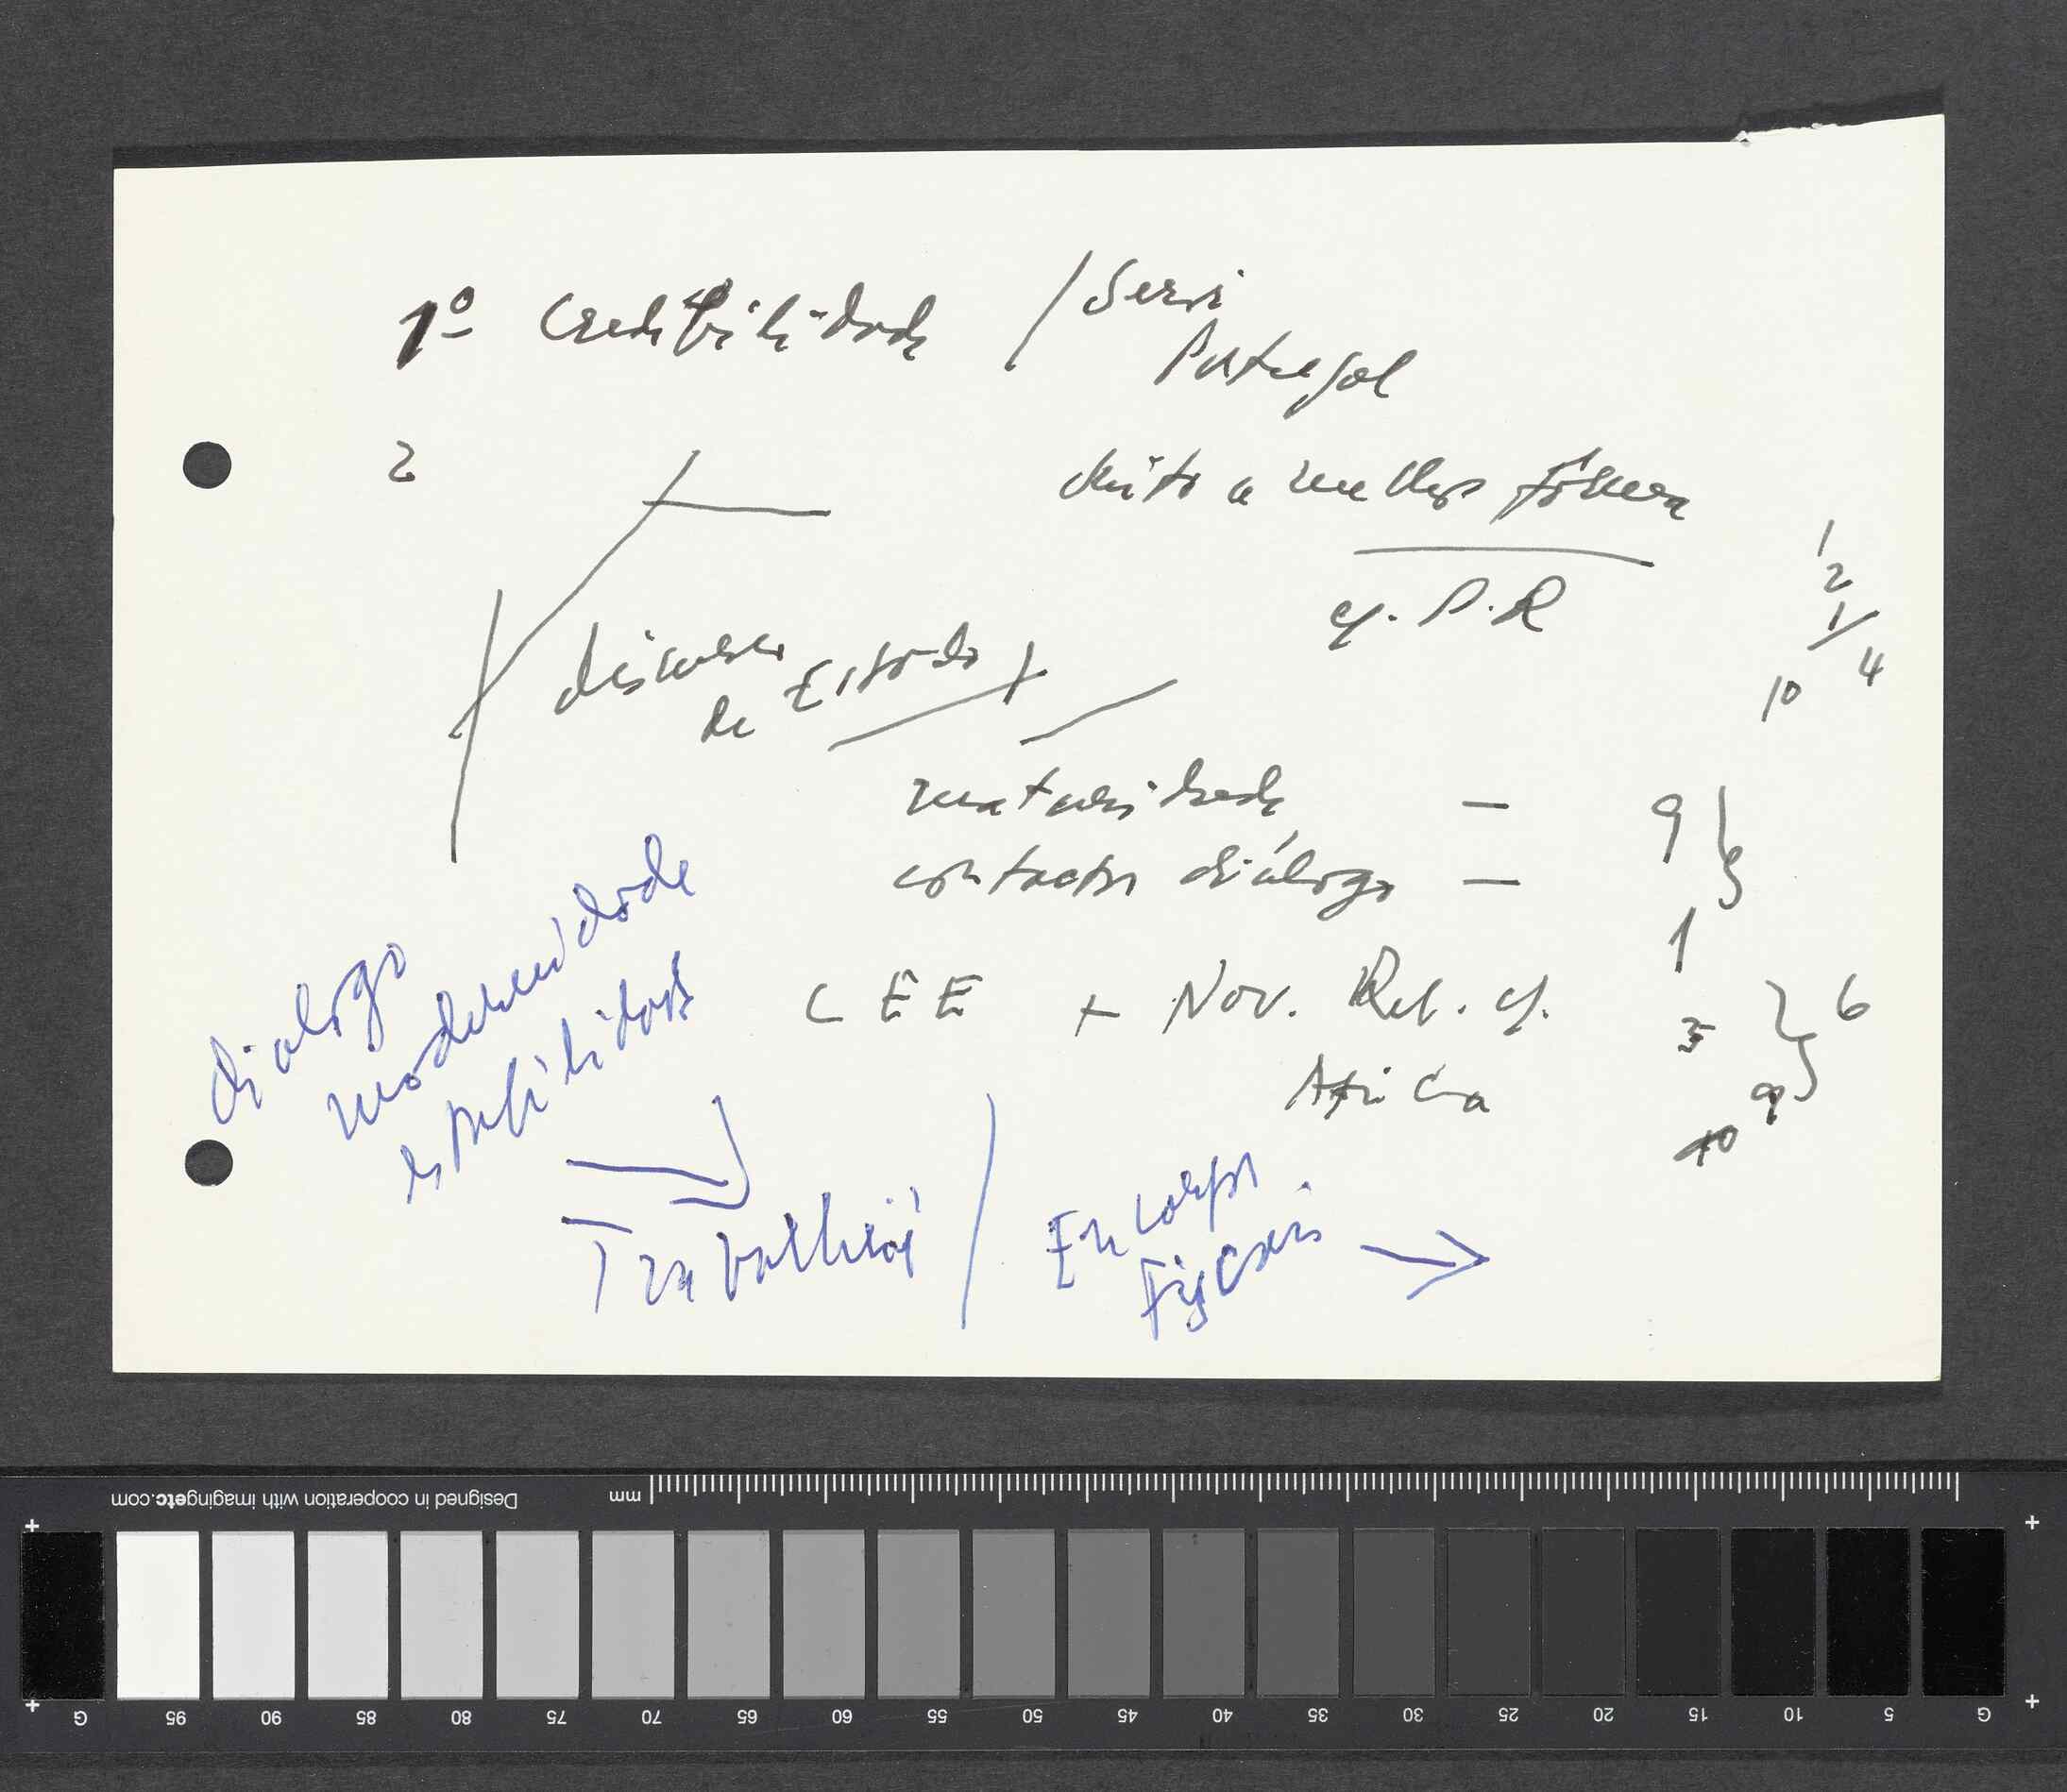 1º Credibilidade / Servi
Portugal
2
muito a melhor forma
c/. P.R
1
2
1/
4
10
discurso
de Estado +
maturidade — 9
contactos diálogo —
1
CEE + Nov. Rel. c/.
Africa
3
6
9
10
dialogo
modernidade
estabilidade
Trabalhei
Encargos
fiscais →
Designed in cooperation with imagingetc.com
mm
G 95 90 85 80 75 70 65 60 55 50 45 40 35 30 25 20 15 10 5 G